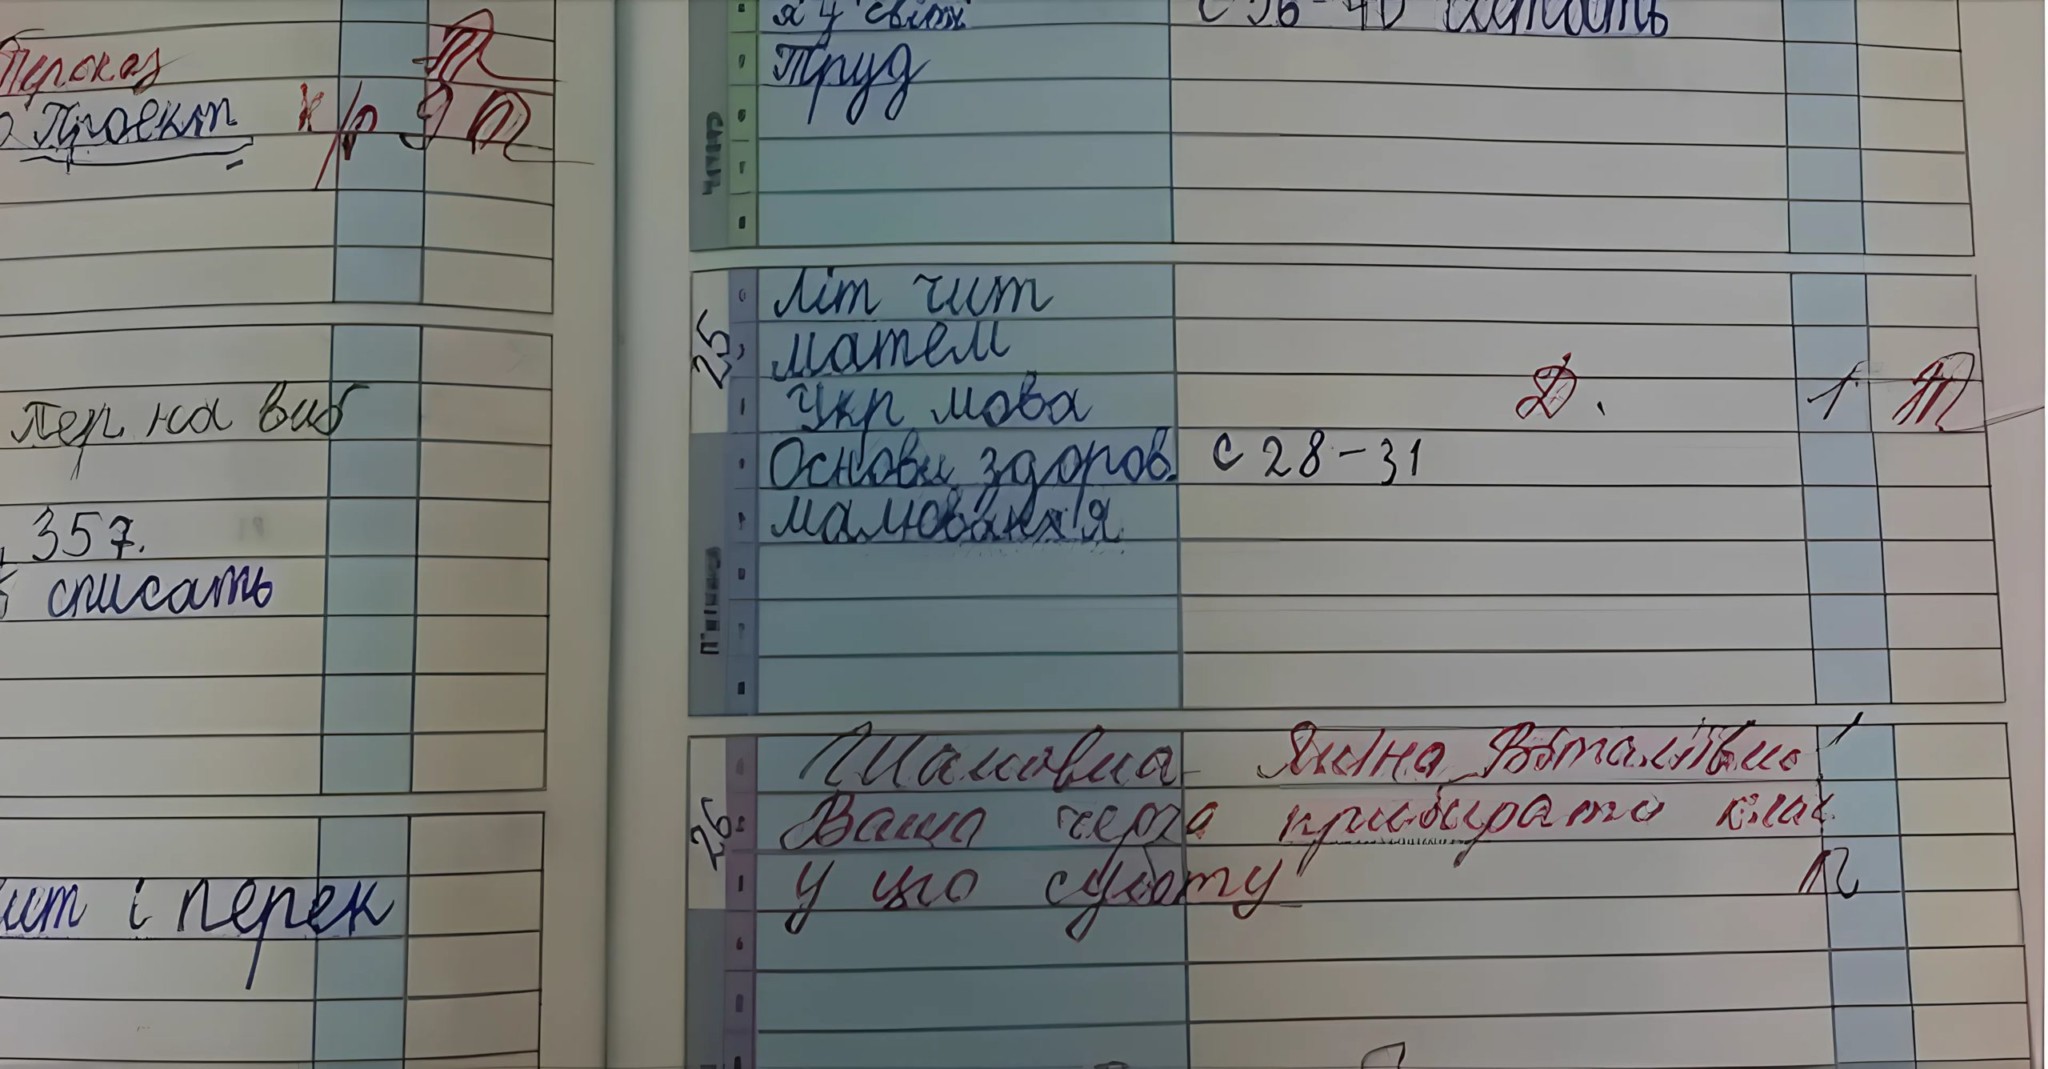 Переказ
Проект к/р 9
Пер на виб
357.
списать
і перек
я у світі с 36-40 читать
Труд
Четвер
25
Літ чит
матем
Укр мова Д. 1
Основи здоров. с 28-31
малювання
П'ятниця
26
Шановна Яніна Віталіївно!
Ваша черга прибирати клас
у цю суботу